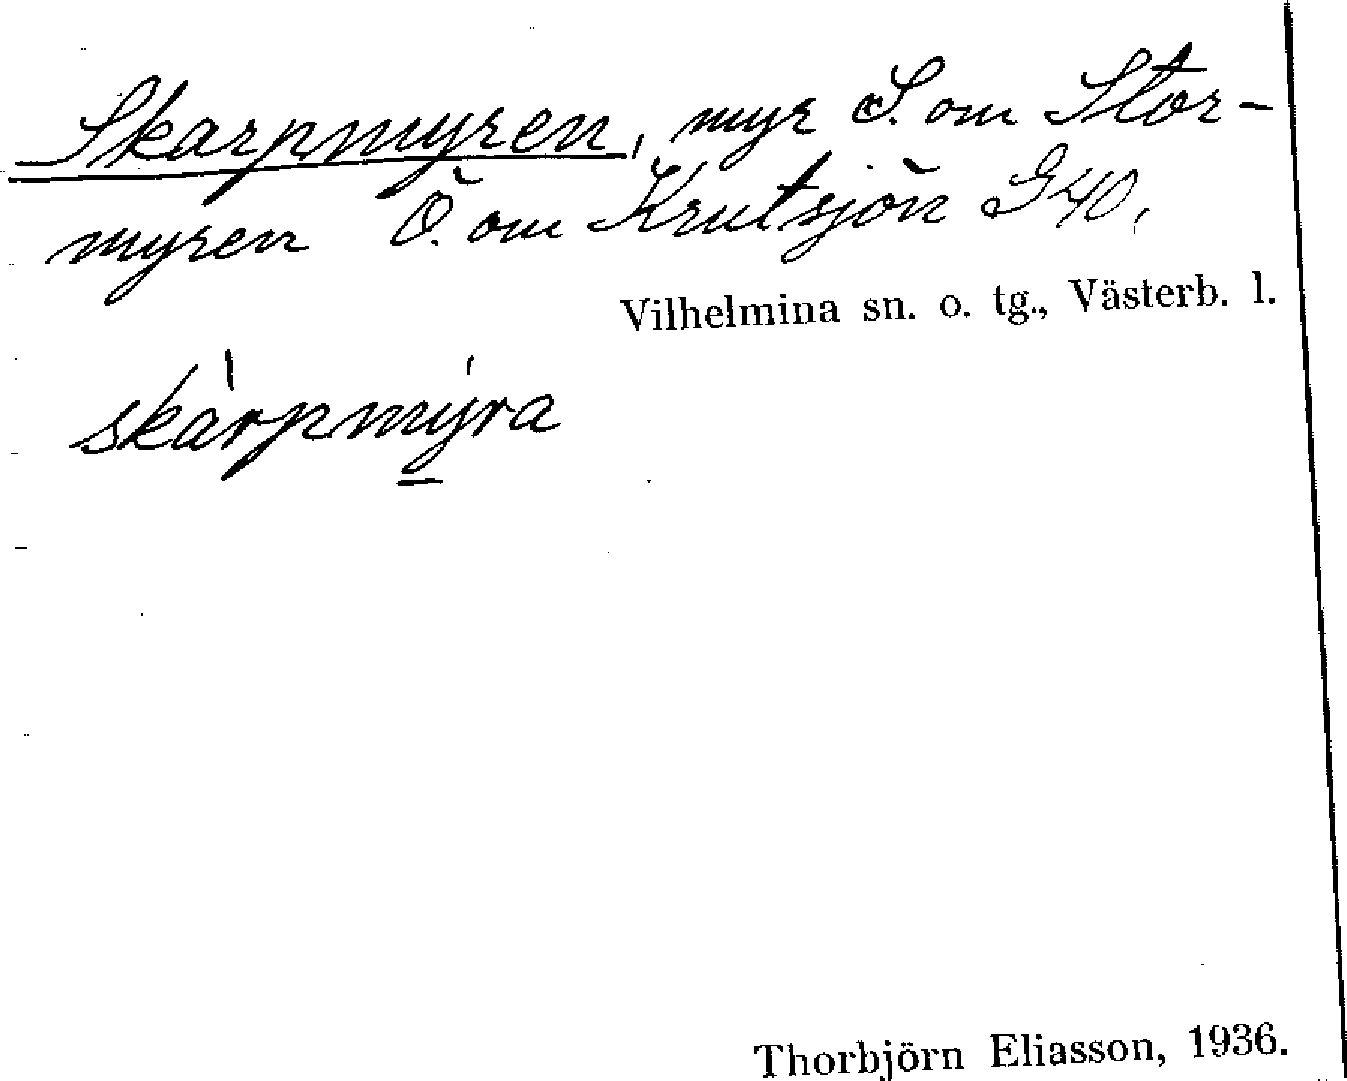 Skarpmyren, myr S. om Stor-
myren Ö. om Krutsjön G40,
Vilhelmina sn. o. tg., Västerb. l.
skàrpmýra
Thorbjörn Eliasson, 1936.